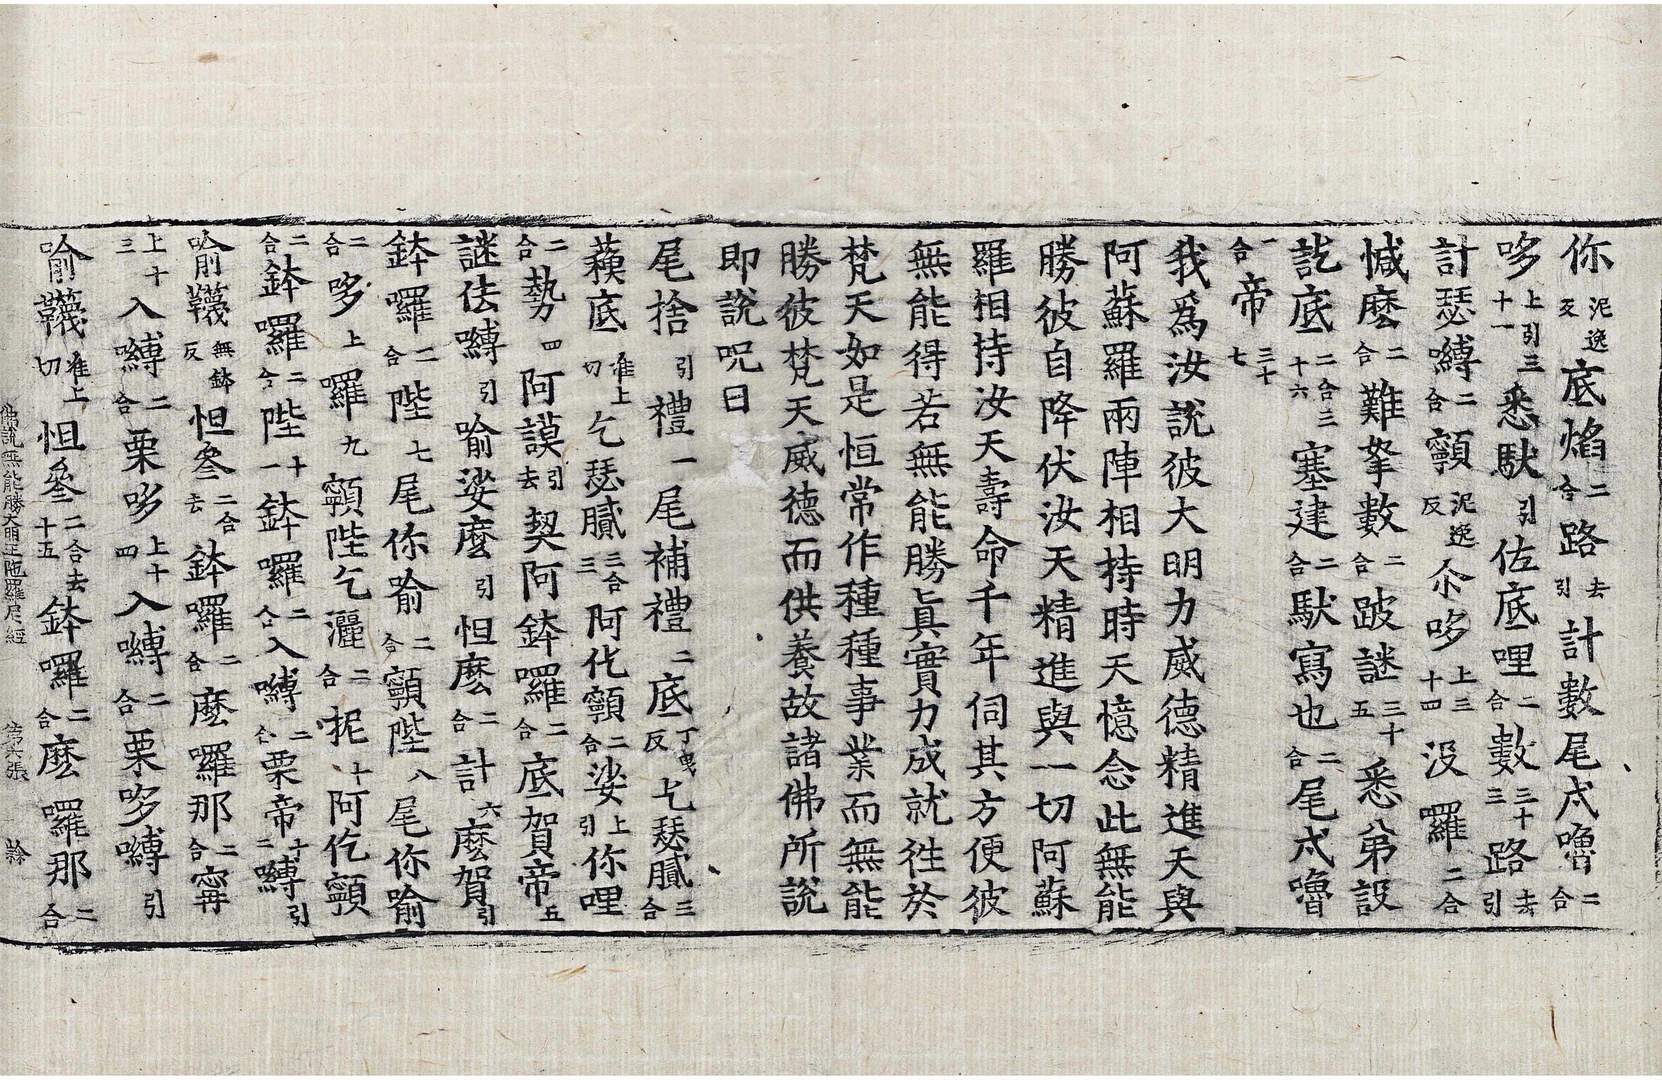 你泥逸反底焰二合路去引計數尾戍嚕二合
哆上引三十一悉馱引佐底哩二合數三十三路去引
計瑟嚩二合顐泥逸反尒哆上三十四沒囉二合
慽麽二合難拏數二合跛謎三十五悉弟設
訖底二合三十六塞建二合馱寫也二合尾戍嚕
一合帝三十七
我爲汝說彼大明力威德精進天與
阿蘇羅兩陣相持時天憶念此無能
勝彼自降伏汝天精進與一切阿蘇
羅相持汝天壽命千年伺其方便彼
無能得若無能勝眞實力成就往於
梵天如是恒常作種種事業而無能
勝彼梵天威德而供養故諸佛所說
即說呪曰
尾捨引禮一尾補禮二底丁曳反乞瑟膩三合
蘓底准上切乞瑟膩三合三阿化顐二合娑上引你哩
二合勢四阿謨引去契阿鉢囉二合底賀帝五
謎佉嚩引喻娑麽引怛麽二合計六麽賀引
鉢囉二合陛七尾你喻二合顐陛八尾你喻
二合哆上羅九顐陛乞灑二合抳十阿仡顐
二合鉢囉二合陛十一鉢囉二合入嚩二合栗帝十二嚩引
喻韈無鉢反怛叅二合去鉢囉二合麽囉那二合寗
上十三入嚩二合栗哆上十四入嚩二合栗哆嚩引
喻韈准上切怛叅二合去十五鉢囉二合麽囉那二合
佛說無能勝大明王陁羅尼經 第六張